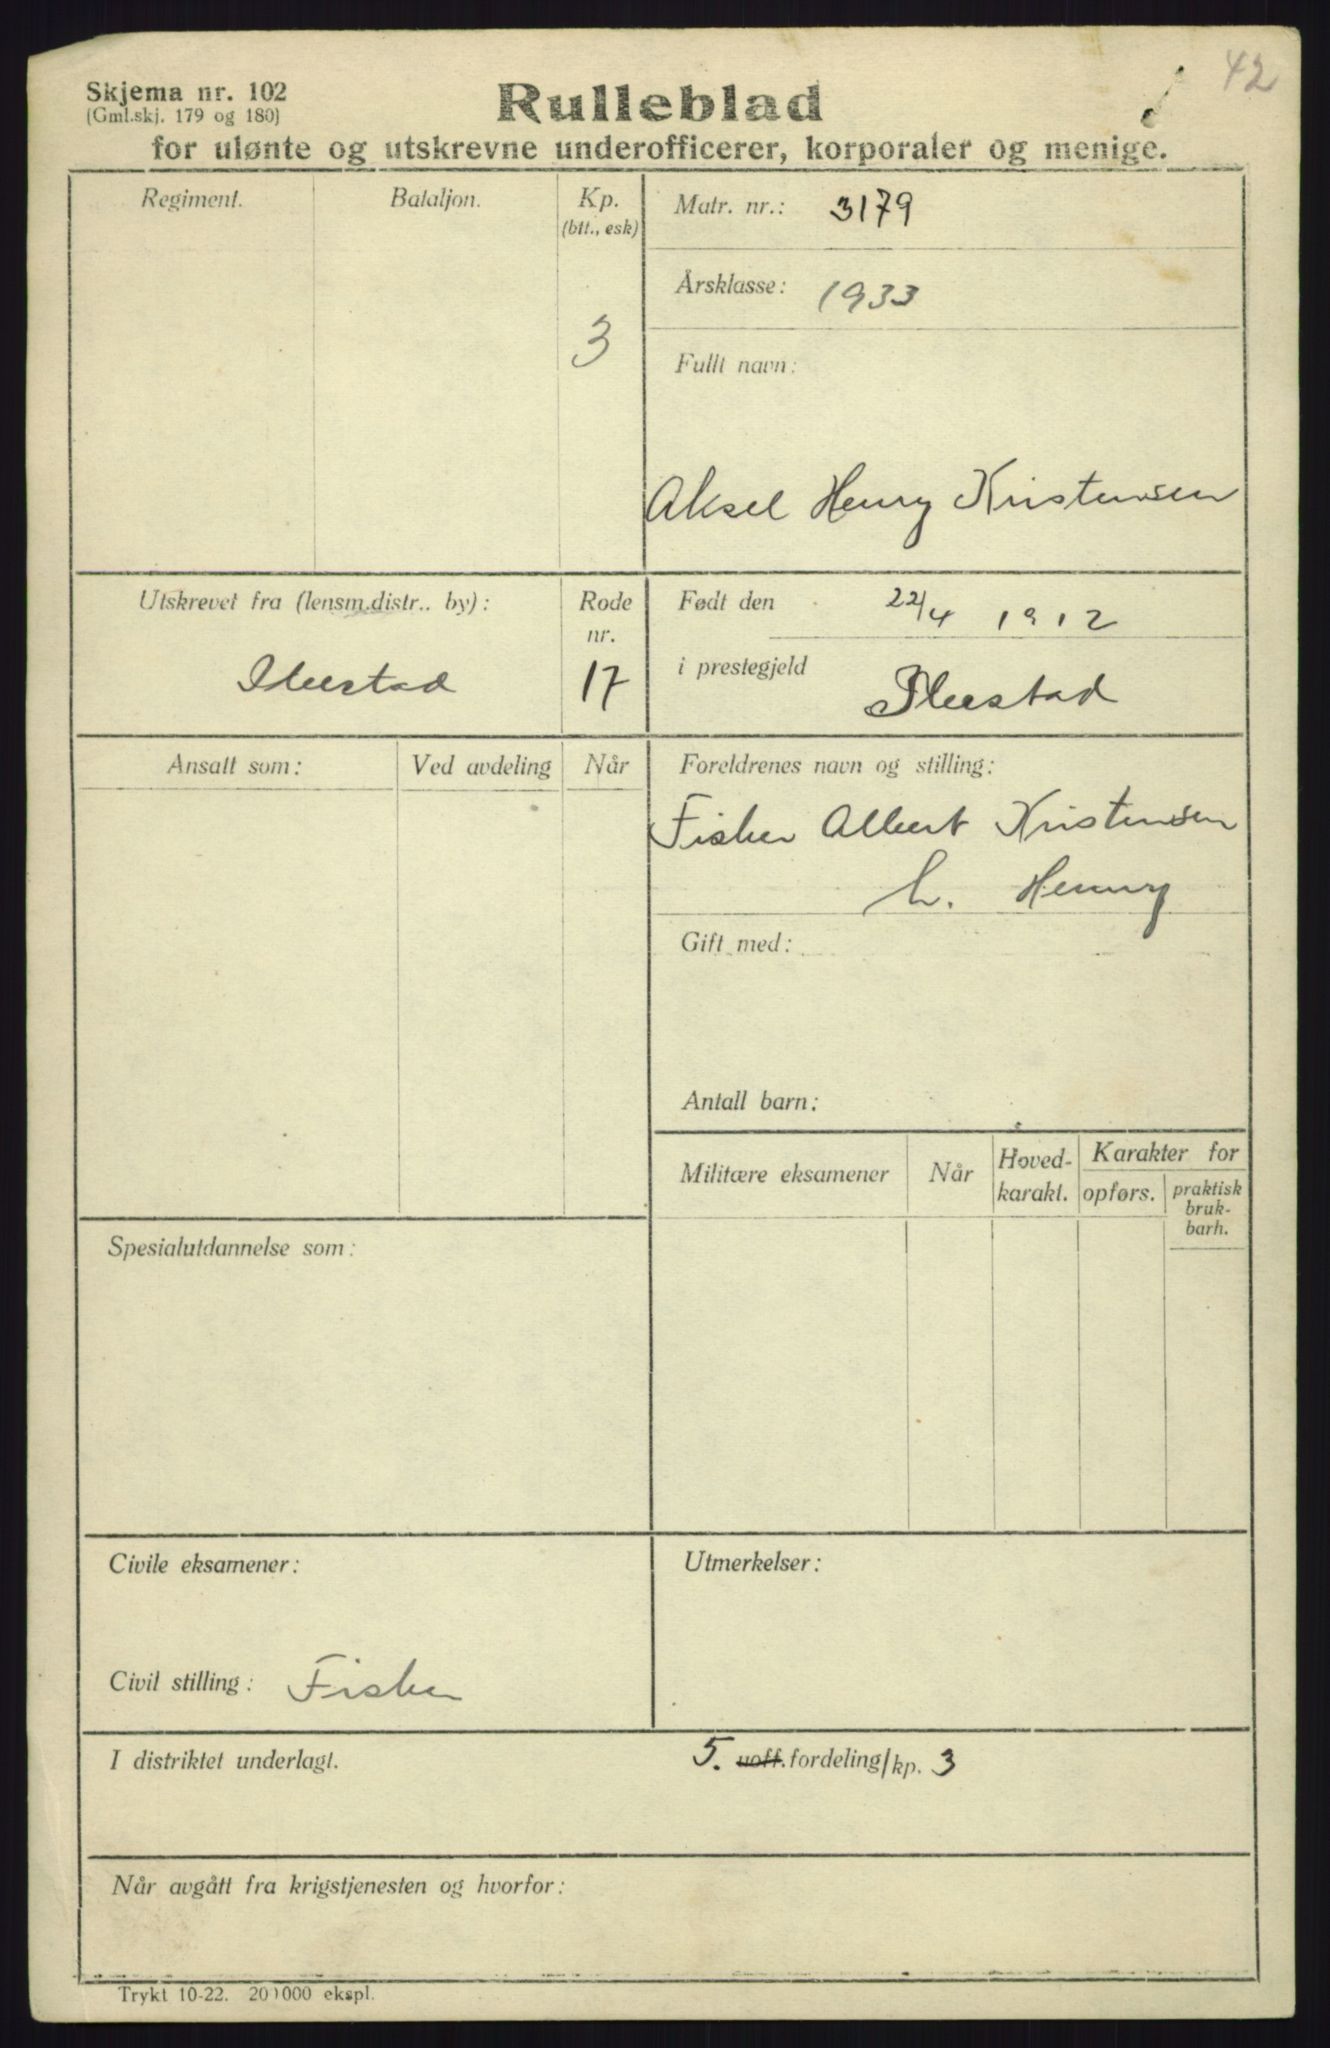 42
Skjema nr. 102
(Gml.skj. 179 og 180)
Rulleblad
for ulønte og utskrevne underofficerer, korporaler og menige.
Regiment.
Bataljon.
Kp.
(btt., esk)
3
Matr. nr.: 3179
Årsklasse: 1933
Fullt navn:
Aksel Henry Kristensen
Utskrevet fra (lensm.distr.. by):
Ibestad
Rode
nr.
17
Født den 22/4 1912
i prestegjeld Ibestad
Ansatt som:
Ved avdeling
Når
Foreldrenes navn og stilling:
Fisker Albert Kristensen
h. Henny
Gift med:
Antall barn:
Militære eksamener
Når
Hoved-
karakt.
Karakter for
opførs.
praktisk
bruk-
barh.
Spesialutdannelse som:
Civile eksamener:
Civil stilling: Fisker
Utmerkelser:
I distriktet underlagt.
5. uoff. fordeling/kp. 3
Når avgått fra krigstjenesten og hvorfor:
Trykt 10-22. 20 000 ekspl.